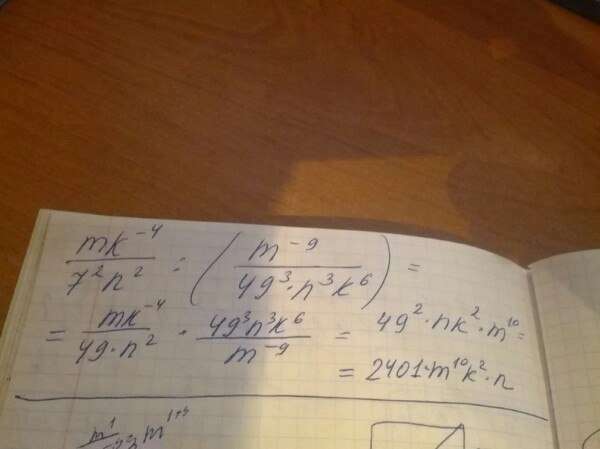 mk⁻⁴ / 7²n² : (m⁻⁹ / 49³·n³k⁶) =
= mk⁻⁴ / 49·n² · 49³n³k⁶ / m⁻⁹ = 49²·nk²·m¹⁰ =
= 2401·m¹⁰k²·n